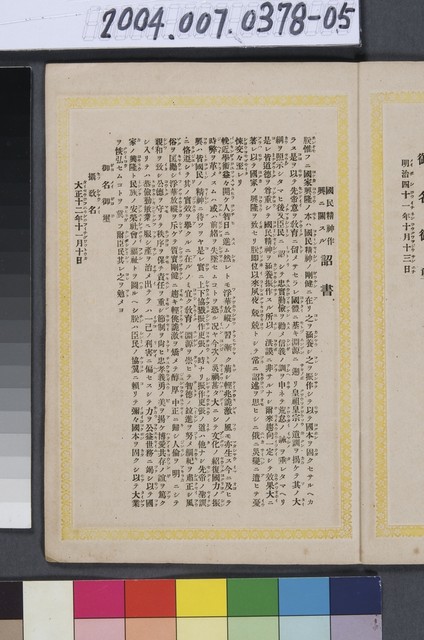 2004.007.0378-05
明治四十一年十月十三日
國民精神作
興ニ關スル 詔書
朕惟フニ國家興隆ノ本ハ國民精神ノ剛健ニ在リ之ヲ涵養シ之ヲ振作シテ以テ國本ヲ固クセサルヘカ
ラス是ヲ以テ先帝意ヲ敎育ニ留メサセラレ國體ニ基キ淵源ニ遡リ皇祖皇宗ノ遺訓ヲ掲ケテ其ノ大
綱ヲ昭示シタマヒ後又臣民ニ詔シテ忠實勤儉ヲ勸メ信義ノ訓ヲ申ネテ荒怠ノ誡ヲ垂レタマヘリ
是レ皆道德ヲ尊重シテ國民精神ヲ涵養振作スル所以ノ洪謨ニ非サルナシ爾來趨向一定シテ效果大ニ
著レ以テ國家ノ興隆ヲ致セリ朕卽位以來夙夜兢兢トシテ常ニ紹述ヲ思ヒシニ俄ニ災變ニ遭ヒテ憂
悚交々至レリ
輓近學術益々開ケ人智日ニ進ム然レトモ浮華放縱ノ習漸ク萠シ輕佻詭激ノ風モ亦生ス今ニ及ヒテ
時弊ヲ革メスムハ或ハ前緖ヲ失墜セムコトヲ恐ル況ヤ今次ノ災禍甚タ大ニシテ文化ノ紹復國力ノ振
興ハ皆國民ノ精神ニ待ツヲヤ是レ實ニ上下協戮振作更張ノ時ナリ振作更張ノ道ハ他ナシ先帝ノ聖訓
ニ恪遵シテ其ノ實效ヲ擧クルニ在ルノミ宜ク敎育ノ淵源ヲ崇ヒテ智德ノ竝進ヲ努メ綱紀ヲ肅正シ風
俗ヲ匡勵シ浮華放縱ヲ斥ケテ質實剛健ニ趨キ輕佻詭激ヲ矯メテ醇厚中正ニ歸シ人倫ヲ明ニシテ
親和ヲ致シ公德ヲ守リテ秩序ヲ保チ責任ヲ重シ節制ヲ尚ヒ忠孝義勇ノ美ヲ揚ケ博愛共存ノ誼ヲ篤ク
シ入リテハ恭儉勤敏業ニ服シ産ヲ治メ出テテハ一己ノ利害ニ偏セスシテ力ヲ公益世務ニ竭シ以テ國
家ノ興隆ト民族ノ安榮社會ノ福祉トヲ圖ルヘシ朕ハ臣民ノ協翼ニ賴リテ彌々國本ヲ固クシ以テ大業
ヲ恢弘セムコトヲ冀フ爾臣民其レ之ヲ勉メヨ
御名御璽
攝政名
大正十二年十一月十日